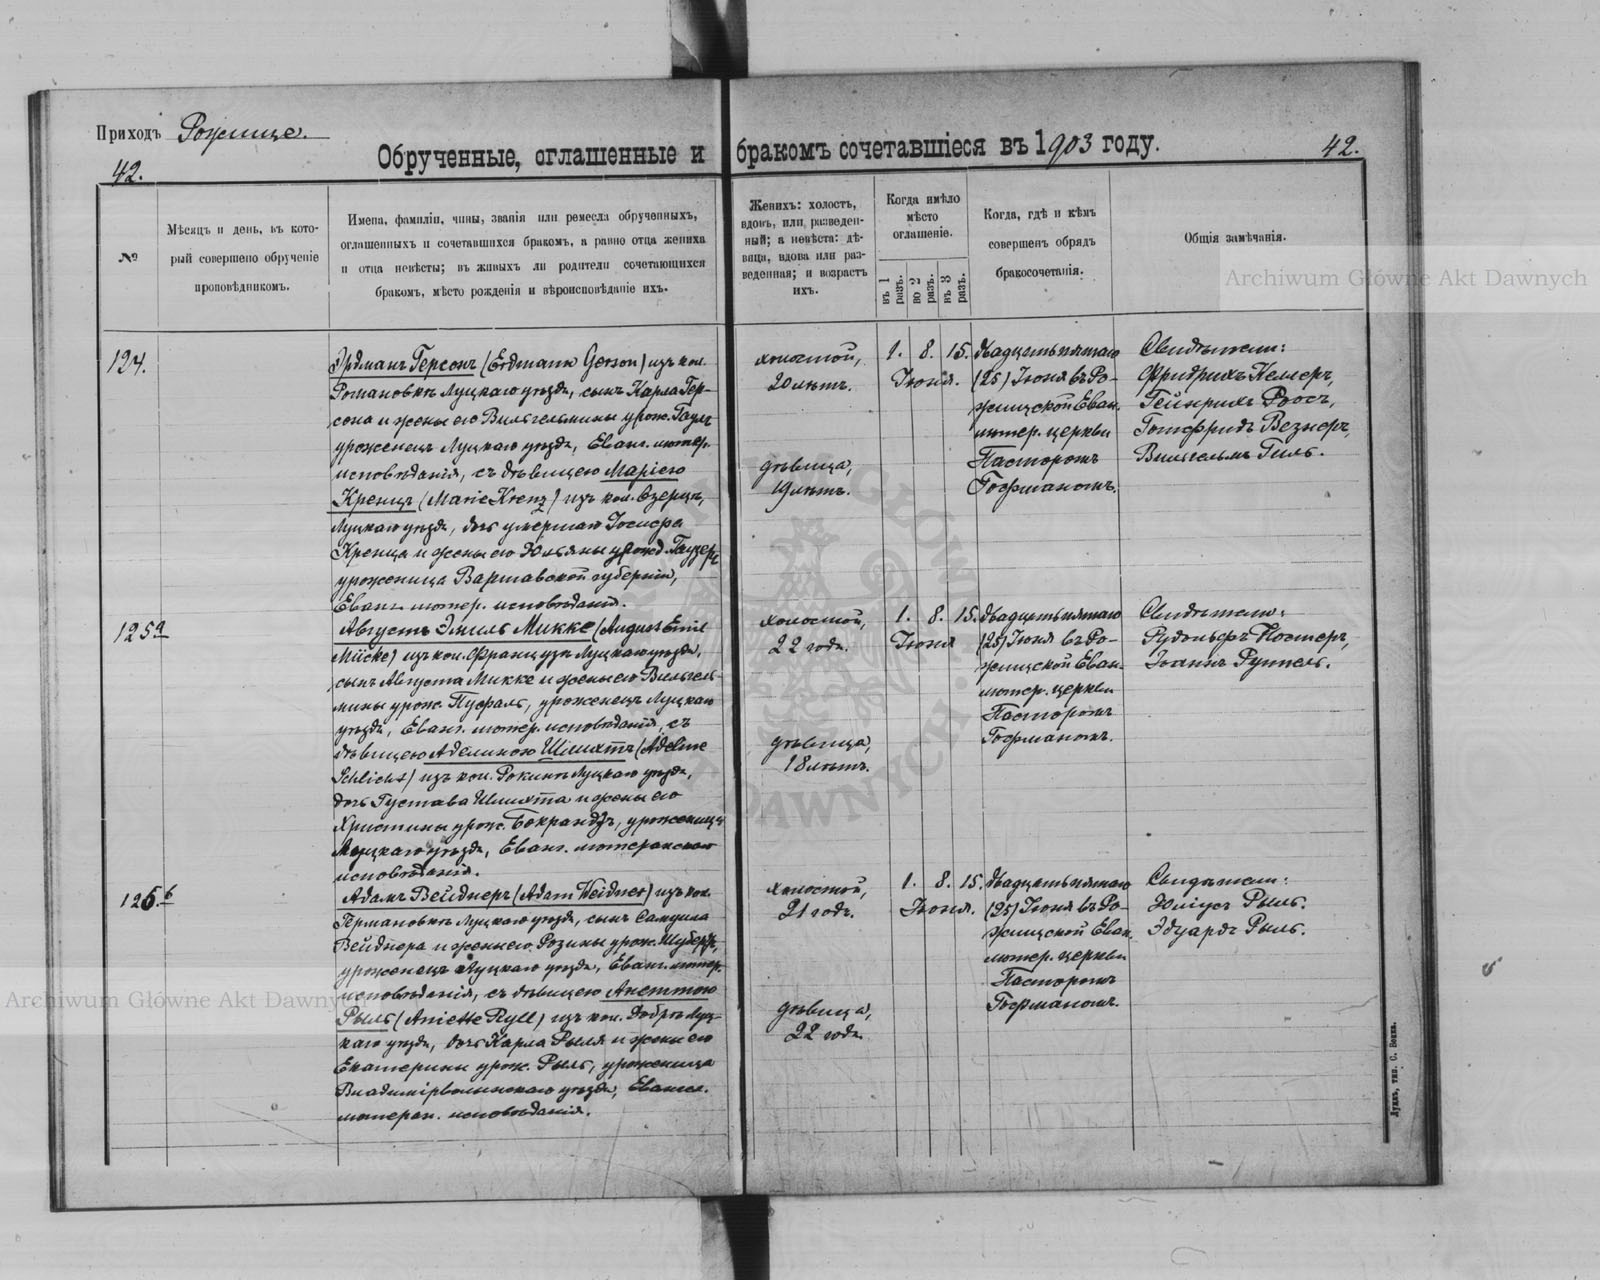 Приходъ Рожище.
42.
Обрученные, оглашенные и бракомъ сочетавшіеся въ 1903 году.
42.
№
Мѣсяцъ и день, въ кото-
рый совершено обрученіе
проповѣдникомъ.
Имена, фамиліи, чины, званія или ремесла обрученныхъ,
оглашенныхъ и сочетавшихся бракомъ, а равно отца жениха
и отца невѣсты; въ живыхъ ли родители сочетающихся
бракомъ, мѣсто рожденія и вѣроисповѣданіе ихъ.
Женихъ: холостъ,
вдовъ, или разведен-
ный; а невѣста: дѣ-
вица, вдова или раз-
веденная; и возрастъ
ихъ.
Когда имѣло
мѣсто
оглашеніе.
въ 1 разъ.
во 2 разъ.
въ 3 разъ.
Когда, гдѣ и кѣмъ
совершенъ обрядъ
бракосочетанія.
Общія замѣчанія.
124.
Эрдманъ Герсонъ (Erdmann Gerson) изъ кол.
Романовкъ Луцкаго уѣзда, сынъ Карла Гер-
сона и жены его Вильгельмины урож.
уроженецъ Луцкаго уѣзда, Еванг. лютер.
исповѣданія, съ дѣвицею Маріею
Кренцъ (Marie Krenz) изъ кол. Озерцъ,
Луцкаго уѣзда, дочь умершаго Іосифа
Кренца и жены его Юльяны урожд.
уроженица Варшавской губерніи,
Еванг. лютер. исповѣданія.
холостой,
20 лѣтъ.
дѣвица,
19 лѣтъ.
1. 8. 15.
Іюня.
двадцать пятаго
(25) Іюня въ Ро-
жищской Еван.
лютер. церкви
Пасторомъ
Гофманомъ.
Свидѣтели:
Фридрихъ Келлеръ,
Гейнрихъ Роосъ,
Готфридъ Везнеръ,
Вильгельмъ Гиль.
125а
Августъ Эмиль Микке (August Emil
Mücke) изъ кол. Французъ Луцкаго уѣзда,
сынъ Августа Микке и жены его Вильгель-
мины урож. Пуфаль, уроженецъ Луцкаго
уѣзда, Еванг. лютер. исповѣданія, съ
дѣвицею Аделиною Шлихтъ (Adeline
Schlicht) изъ кол. Рокинъ Луцкаго уѣзда,
дочь Густава Шлихта и жены его
Христины урож. уроженица
Луцкаго уѣзда, Еванг. лютеранскаго
исповѣданія.
холостой,
22 года.
дѣвица,
18 лѣтъ.
1. 8. 15.
Іюня
двадцать пятаго
(25) Іюня въ Ро-
жищской Еван.
лютер. церкви
Пасторомъ
Гофманомъ.
Свидѣтели:
Рудольфъ Костеръ,
Іоаннъ Руппель.
125.б
Адамъ Вейднеръ (Adam Weidner) изъ кол.
Германовкъ Луцкаго уѣзда, сынъ Самуила
Вейднера и жены его Розины урож. Шубертъ,
уроженецъ Луцкаго уѣзда, Еванг. лютер.
исповѣданія, съ дѣвицею Анеттою
Рыль (Aniette Ryll) изъ кол. Добръ Луц-
каго уѣзда, дочь Карла Рыля и жены его
Екатерины урож. Рыль, уроженица
Владимірволынскаго уѣзда, Еванг.
лютеран. исповѣданія.
холостой,
21 годъ.
дѣвица,
22 года.
1. 8. 15.
Іюня.
двадцать пятаго
(25) Іюня въ Ро-
жищской Еван.
лютер. церкви
Пасторомъ
Гофманомъ.
Свидѣтели:
Юліусъ Рыль.
Эдуардъ Рыль.
Луцкъ, тип. С. Бокка.
Archiwum Główne Akt Dawnych
Archiwum Główne Akt Dawnych